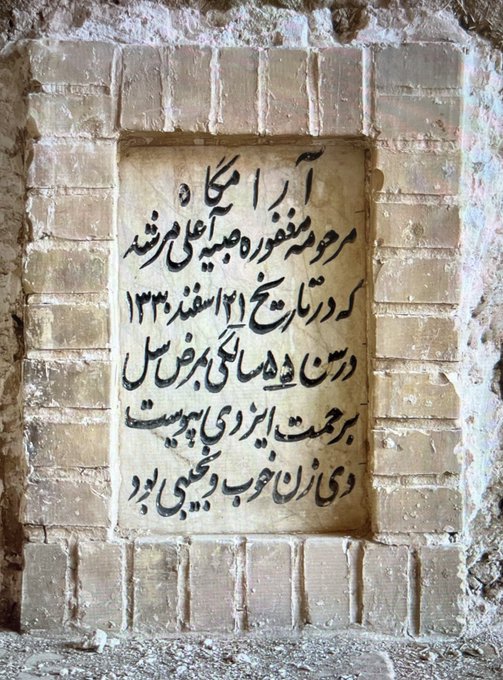 آرامگاه
مرحومه مغفوره صبیه آعلی مرشد
که در تاریخ ۲۱ اسفند ۱۳۳۰
در سن ۵۵ سالگی بمرض سل
برحمت ایزدی پیوست
وی زن خوب و نجیبی بود